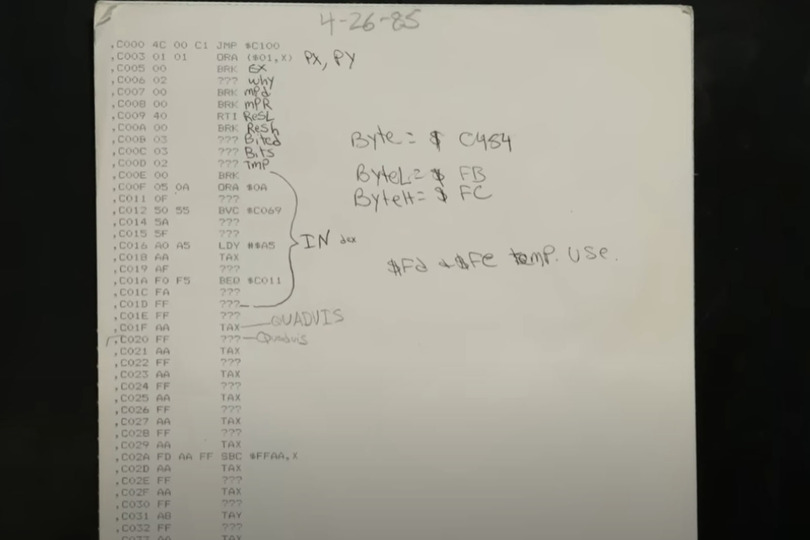 4-26-85
,C000 4C 00 C1 JMP $C100
,C003 01 01 ORA ($01,X) PX, PY
,C005 00 BRK EX
,C006 02 ??? why
,C007 00 BRK mPd
,C008 00 BRK mPR
,C009 40 RTI ResL
,C00A 00 BRK Resh
,C00B 03 ??? Bited
,C00C 03 ??? Bits
,C00D 02 ??? TmP
,C00E 00 BRK
,C00F 05 0A ORA $0A
,C011 0F ???
,C012 50 55 BVC $C069
,C014 5A ???
,C015 5F ???
,C016 A0 A5 LDY #$A5
,C018 AA TAX
,C019 AF ???
,C01A F0 F5 BEQ $C011
,C01C FA ???
,C01D FF ???
,C01E FF ???
,C01F AA TAX QUADVIS
,C020 FF ??? Quadvis
,C021 AA TAX
,C022 FF ???
,C023 AA TAX
,C024 FF ???
,C025 AA TAX
,C026 FF ???
,C027 AA TAX
,C028 FF ???
,C029 AA TAX
,C02A FD AA FF SBC $FFAA,X
,C02D AA TAX
,C02E FF ???
,C02F AA TAX
,C030 FF ???
,C031 A8 TAY
,C032 FF ???
,C033 AA TAX
Byte = $ C484
ByteL = $ FB
ByteH = $ FC
INdex
$Fd + $FE temp. use.